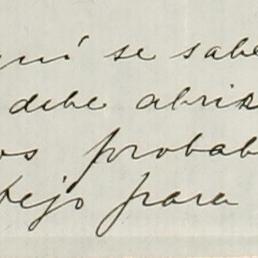 quí se sabe
debe abris
os probab
tejo para